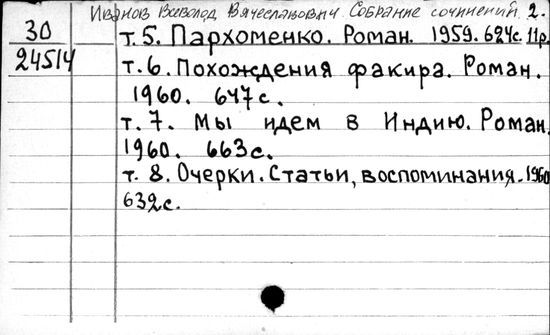 Иванов Всеволод Вячеславович. Собрание сочинений. 2.
30
24514
т. 5. Пархоменко. Роман. 1959. 624с. 11р.
т. 6. Похождения факира. Роман.
1960. 647с.
т. 7. Мы идем в Индию. Роман.
1960. 663с.
т. 8. Очерки. Статьи, воспоминания. 1960
632с.